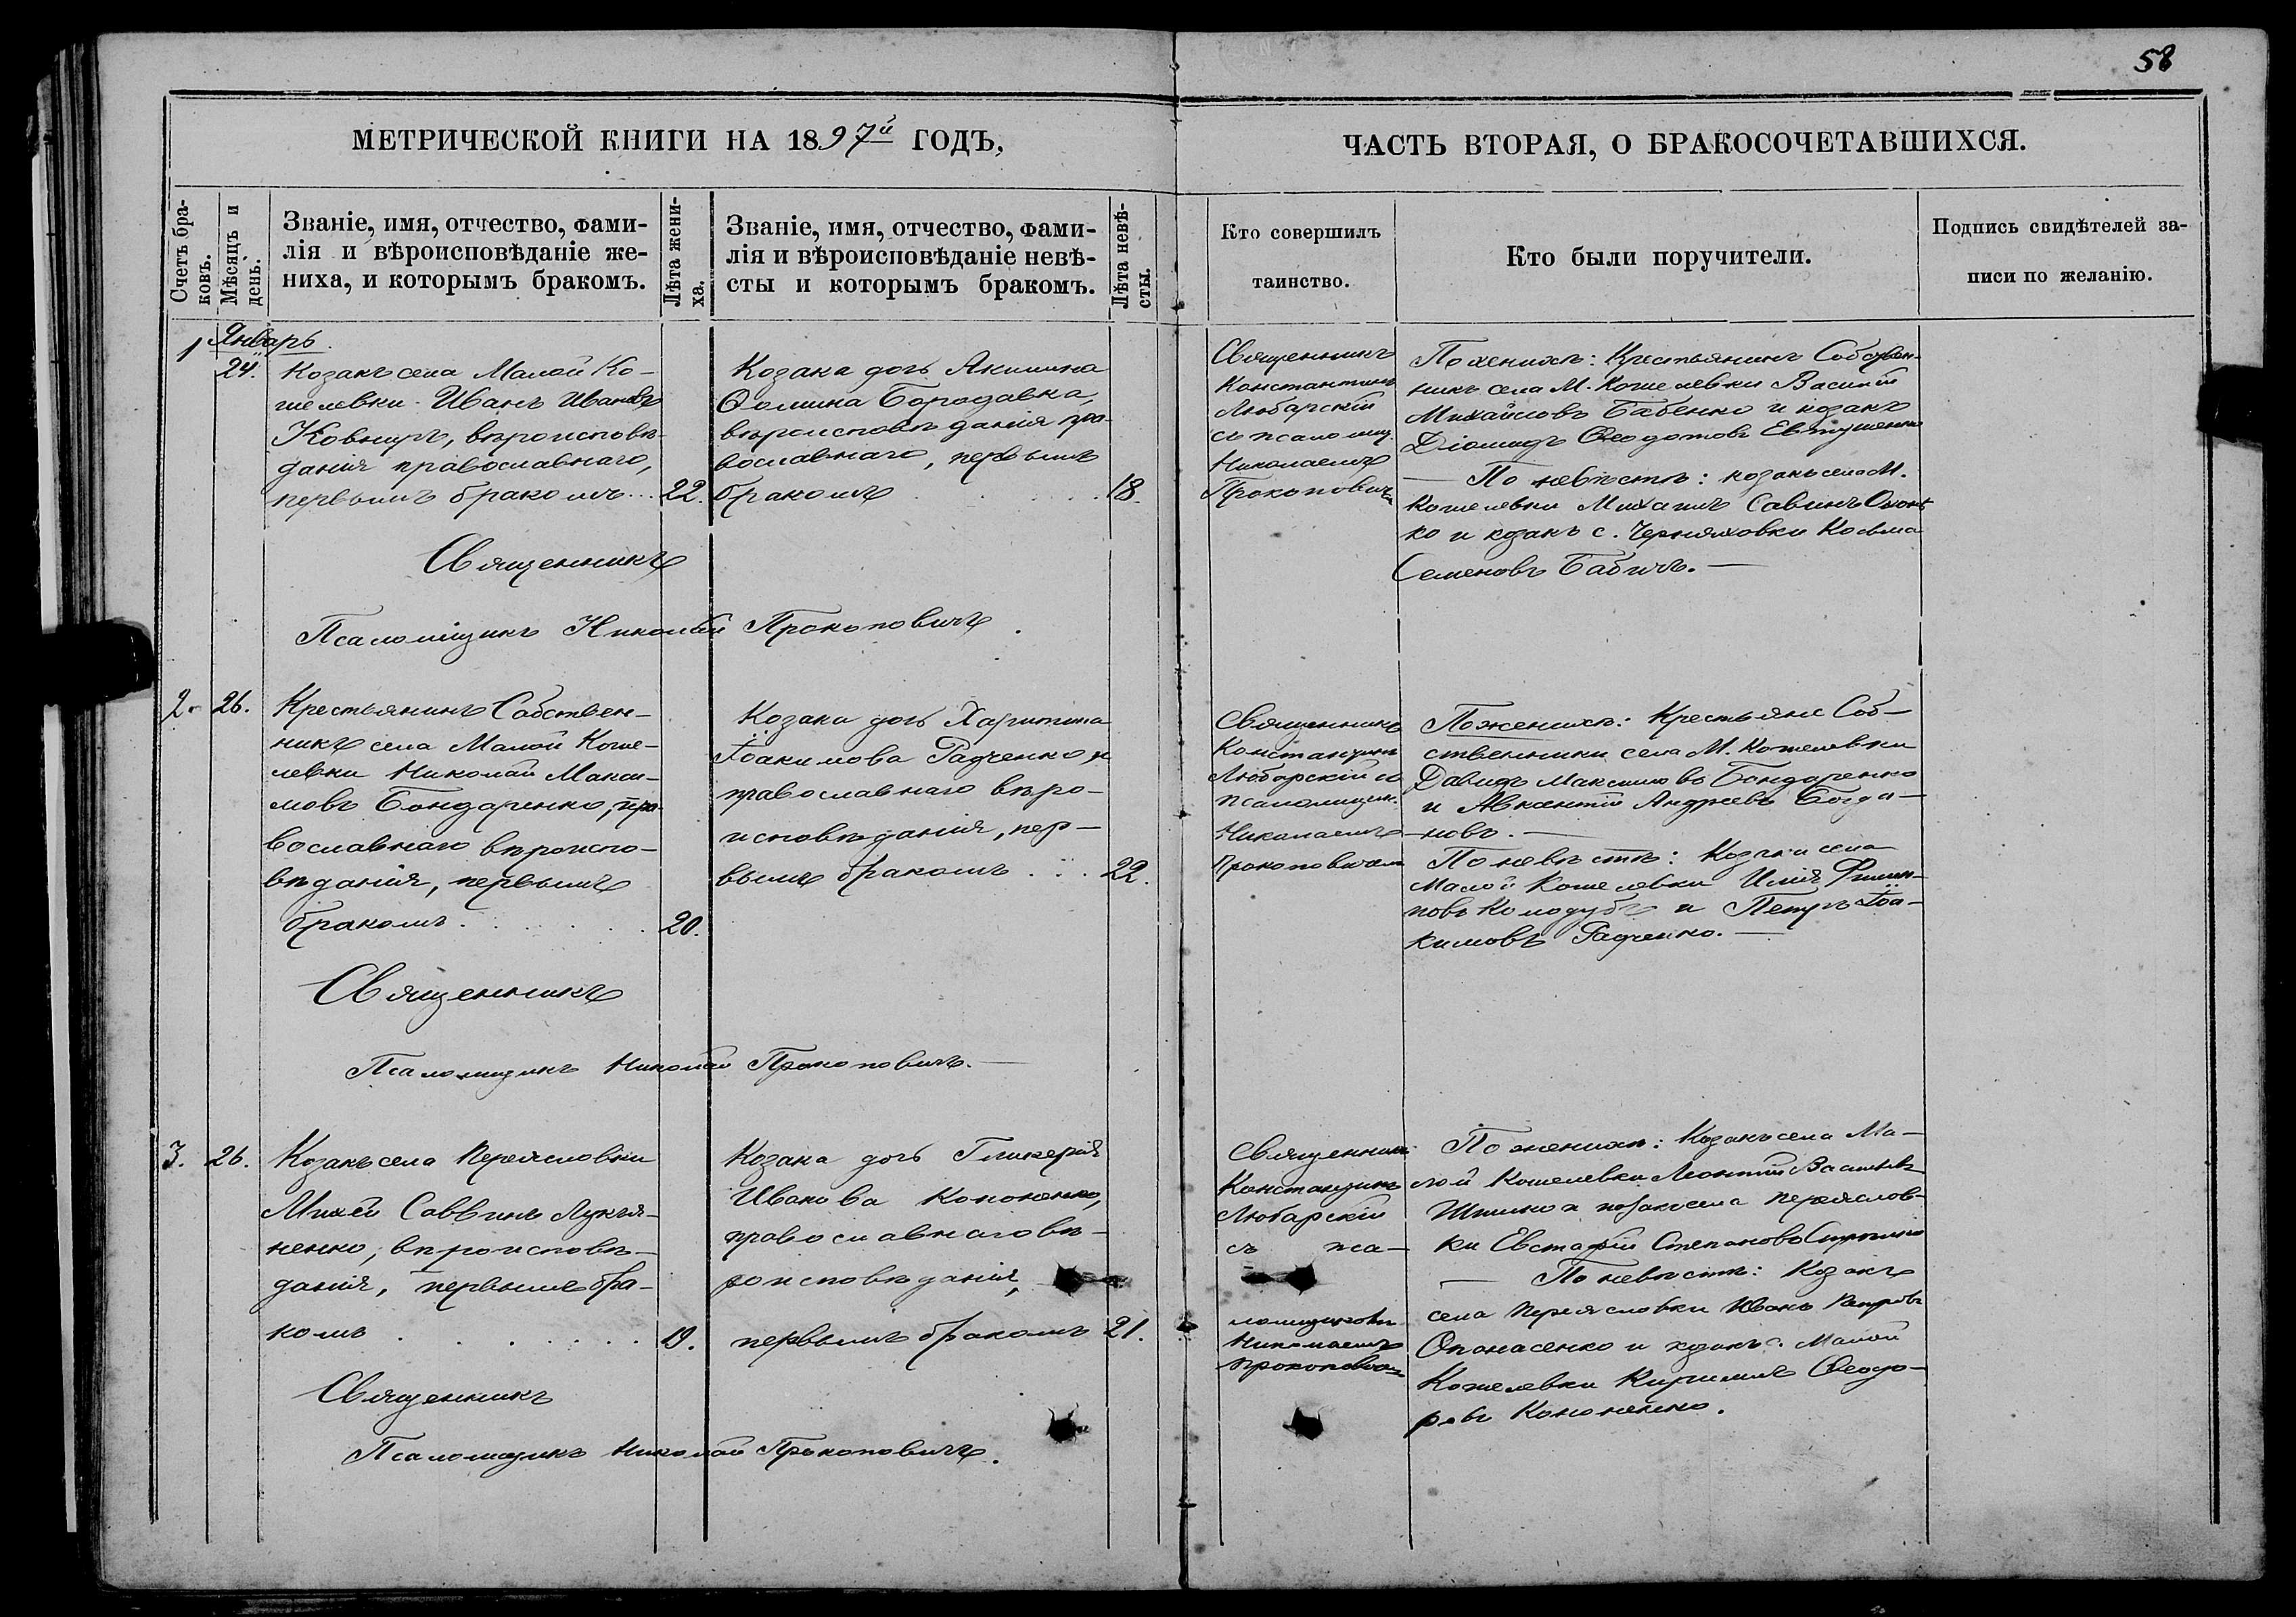 58
МЕТРИЧЕСКОЙ КНИГИ НА 1897й ГОДЪ,
ЧАСТЬ ВТОРАЯ, О БРАКОСОЧЕТАВШИХСЯ.
Счетъ бра-
ковъ.
Мѣсяцъ и
день.
Званіе, имя, отчество, фами-
лія и вѣроисповѣданіе же-
ниха, и которымъ бракомъ.
Лѣта жени-
ха.
Званіе, имя, отчество, фами-
лія и вѣроисповѣданіе невѣ-
сты и которымъ бракомъ.
Лѣта невѣ-
сты.
Кто совершилъ
таинство.
Кто были поручители.
Подпись свидѣтелей за-
писи по желанію.
1
Январь.
24.
Козакъ села Малой Ко-
шелевки Иванъ Ивановъ
Ковниръ, вѣроисповѣ-
данія православнаго,
первымъ бракомъ...
22.
Козака дочь Акилина
Ѳомина Бородавка,
вѣроисповѣданія пра-
вославнаго, первымъ
бракомъ
18.
Священникъ
Константинъ
Любарскій
съ псаломщ.
Николаемъ
Прокопович.
По женихѣ: Крестьянинъ Собствен-
никъ села М. Кошелевки Василій
Михайловъ Бабенко и козакъ
Діомидъ Ѳеодотовъ Евтушенко
— По невѣстѣ: козакъ села М.
Кошелевки Михаилъ Савинъ
ко и козакъ с. Черняховки Косьма
Семеновъ Бабичъ. —
Священникъ
Псаломщикъ Николай Прокоповичъ.
2.
26.
Крестьянинъ Собствен-
никъ села Малой Коше-
левки Николай Макси-
мовъ Бондаренко, пра-
вославнаго вѣроиспо-
вѣданія, первымъ
бракомъ
20.
Козака дочь Харитина
Іоакимова Радченко,
православнаго вѣро-
исповѣданія, пер-
вымъ бракомъ
22.
Священникъ
Константинъ
Любарскій со
псаломщик.
Николаемъ
Прокоповичем
По женихѣ: Крестьяне Соб-
ственники села М. Кошелевки
Давидъ Максимовъ Бондаренко
и Авксентій Андреевъ Богда-
новъ. —
По невѣстѣ: Козаки села
Малой Кошелевки Илія Филип-
повъ Колодубъ и Петръ Іоа-
кимовъ Радченко. —
Священникъ
Псаломщикъ Николай Прокоповичъ. —
3.
26.
Козакъ села Переясловки
Михей Саввинъ Лукья-
ненко, вѣроисповѣ-
данія, первымъ бра-
комъ
19.
Козака дочь Гликерія
Иванова Кононенко,
православнаго вѣ-
роисповѣданія,
первымъ бракомъ
21.
Священникъ
Константинъ
Любарскій
съ пса-
ломщикомъ
Николаемъ
Прокопович
По женихѣ: Козакъ села Ма-
лой Кошелевки Леонтій Васильевъ
и козакъ села Переяслов-
ки Евстафій Степановъ
— По невѣстѣ: Козакъ
села Переясловки Иванъ Петровъ
Опанасенко и козакъ с. Малой
Кошелевки Кириллъ Ѳеодо-
ровъ Кононенко.
Священникъ
Псаломщикъ Николай Прокоповичъ.